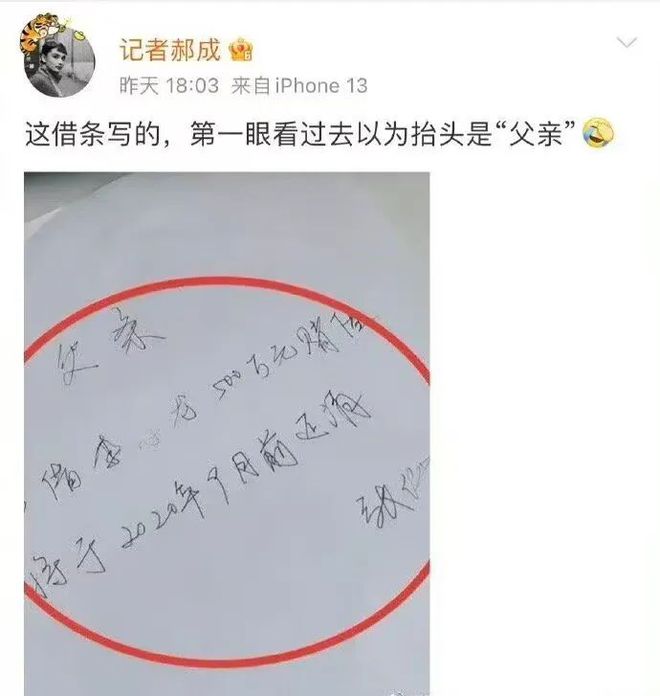 记者郝成
昨天 18:03 来自iPhone 13
这借条写的，第一眼看过去以为抬头是“父亲”
欠条
借李 龙 500万元赌债
将于2020年9月前还清